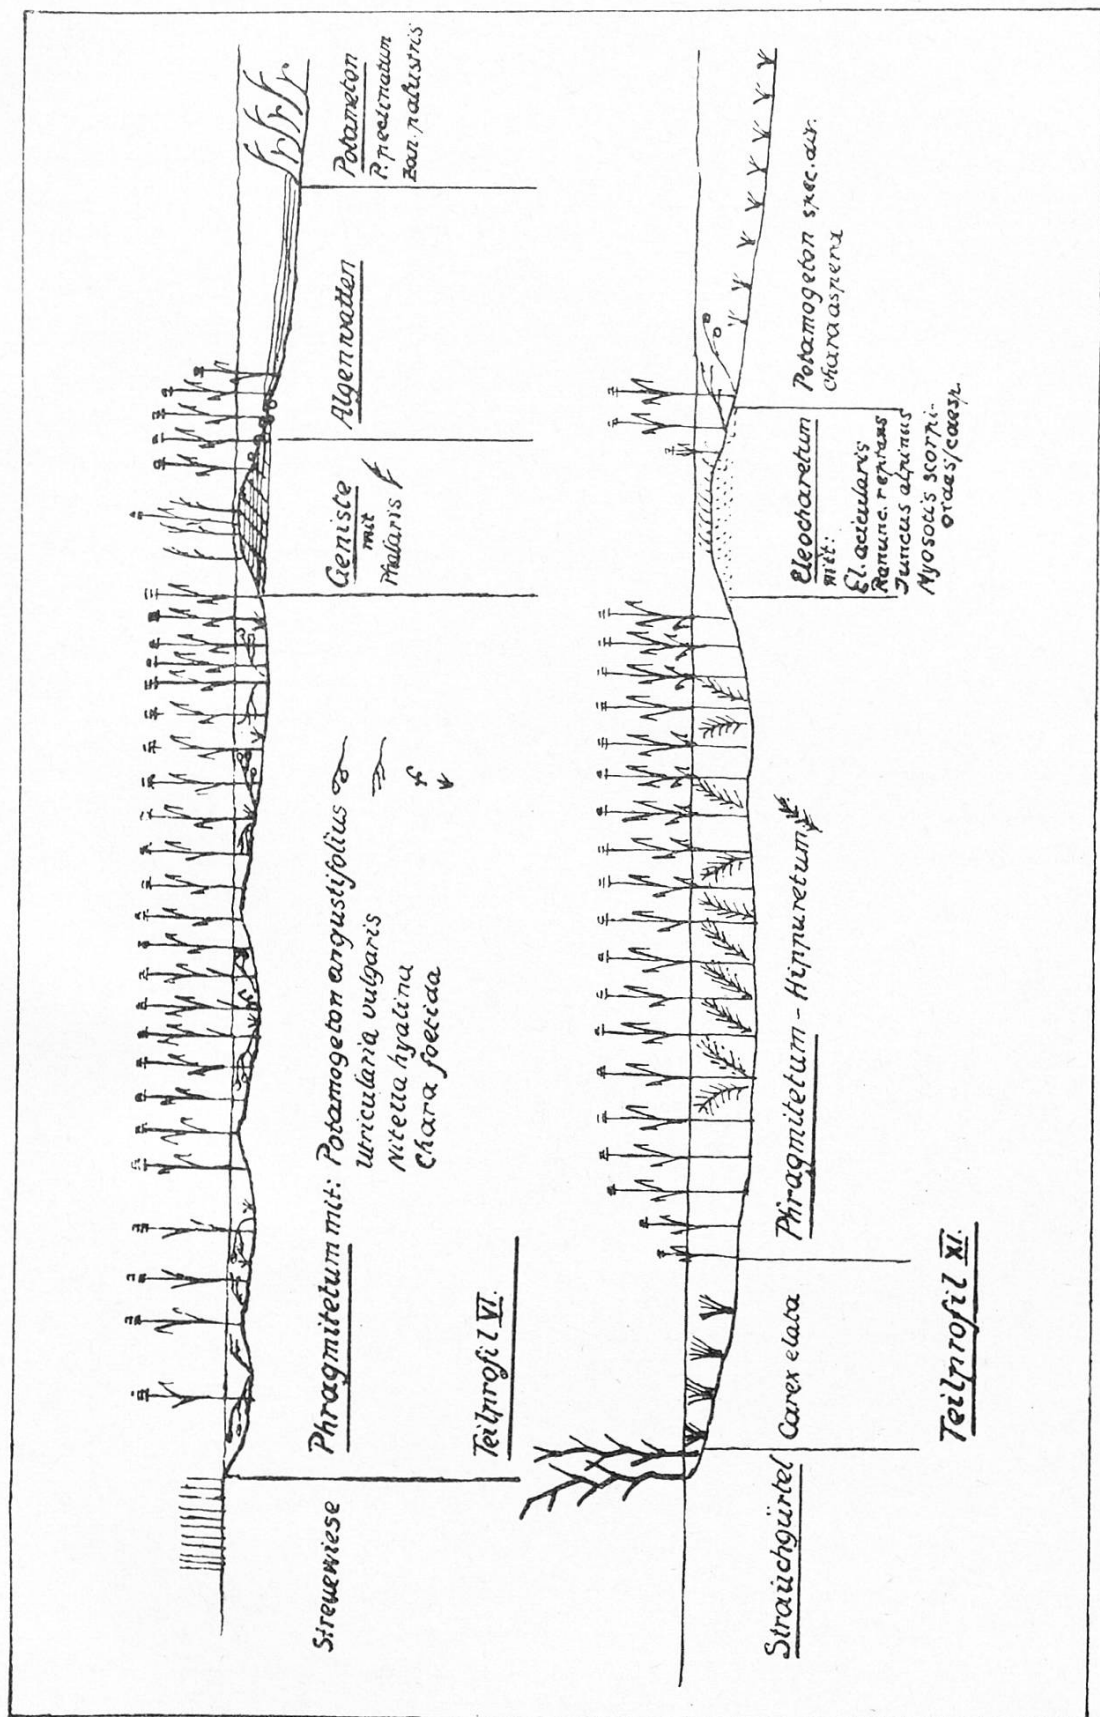 Streuewiese
Phragmitetum mit: Potamogeton angustifolius
Utricularia vulgaris
Nitella hyalina
Chara foetida
Geniste
mit
Phalaris
Algenwatten
Potameton
P. pectinatum
Zan. palustris
Teilprofil VI.
Straüchgürtel
Carex elata
Phragmitetum - Hippuretum
Eleocharetum
mit:
El. acicularis
Ranunc. reptans
Juncus alpinus
Myosotis scorpi-
oides/caesp.
Potamogeton spec. div.
chara aspera
Teilprofil XI.